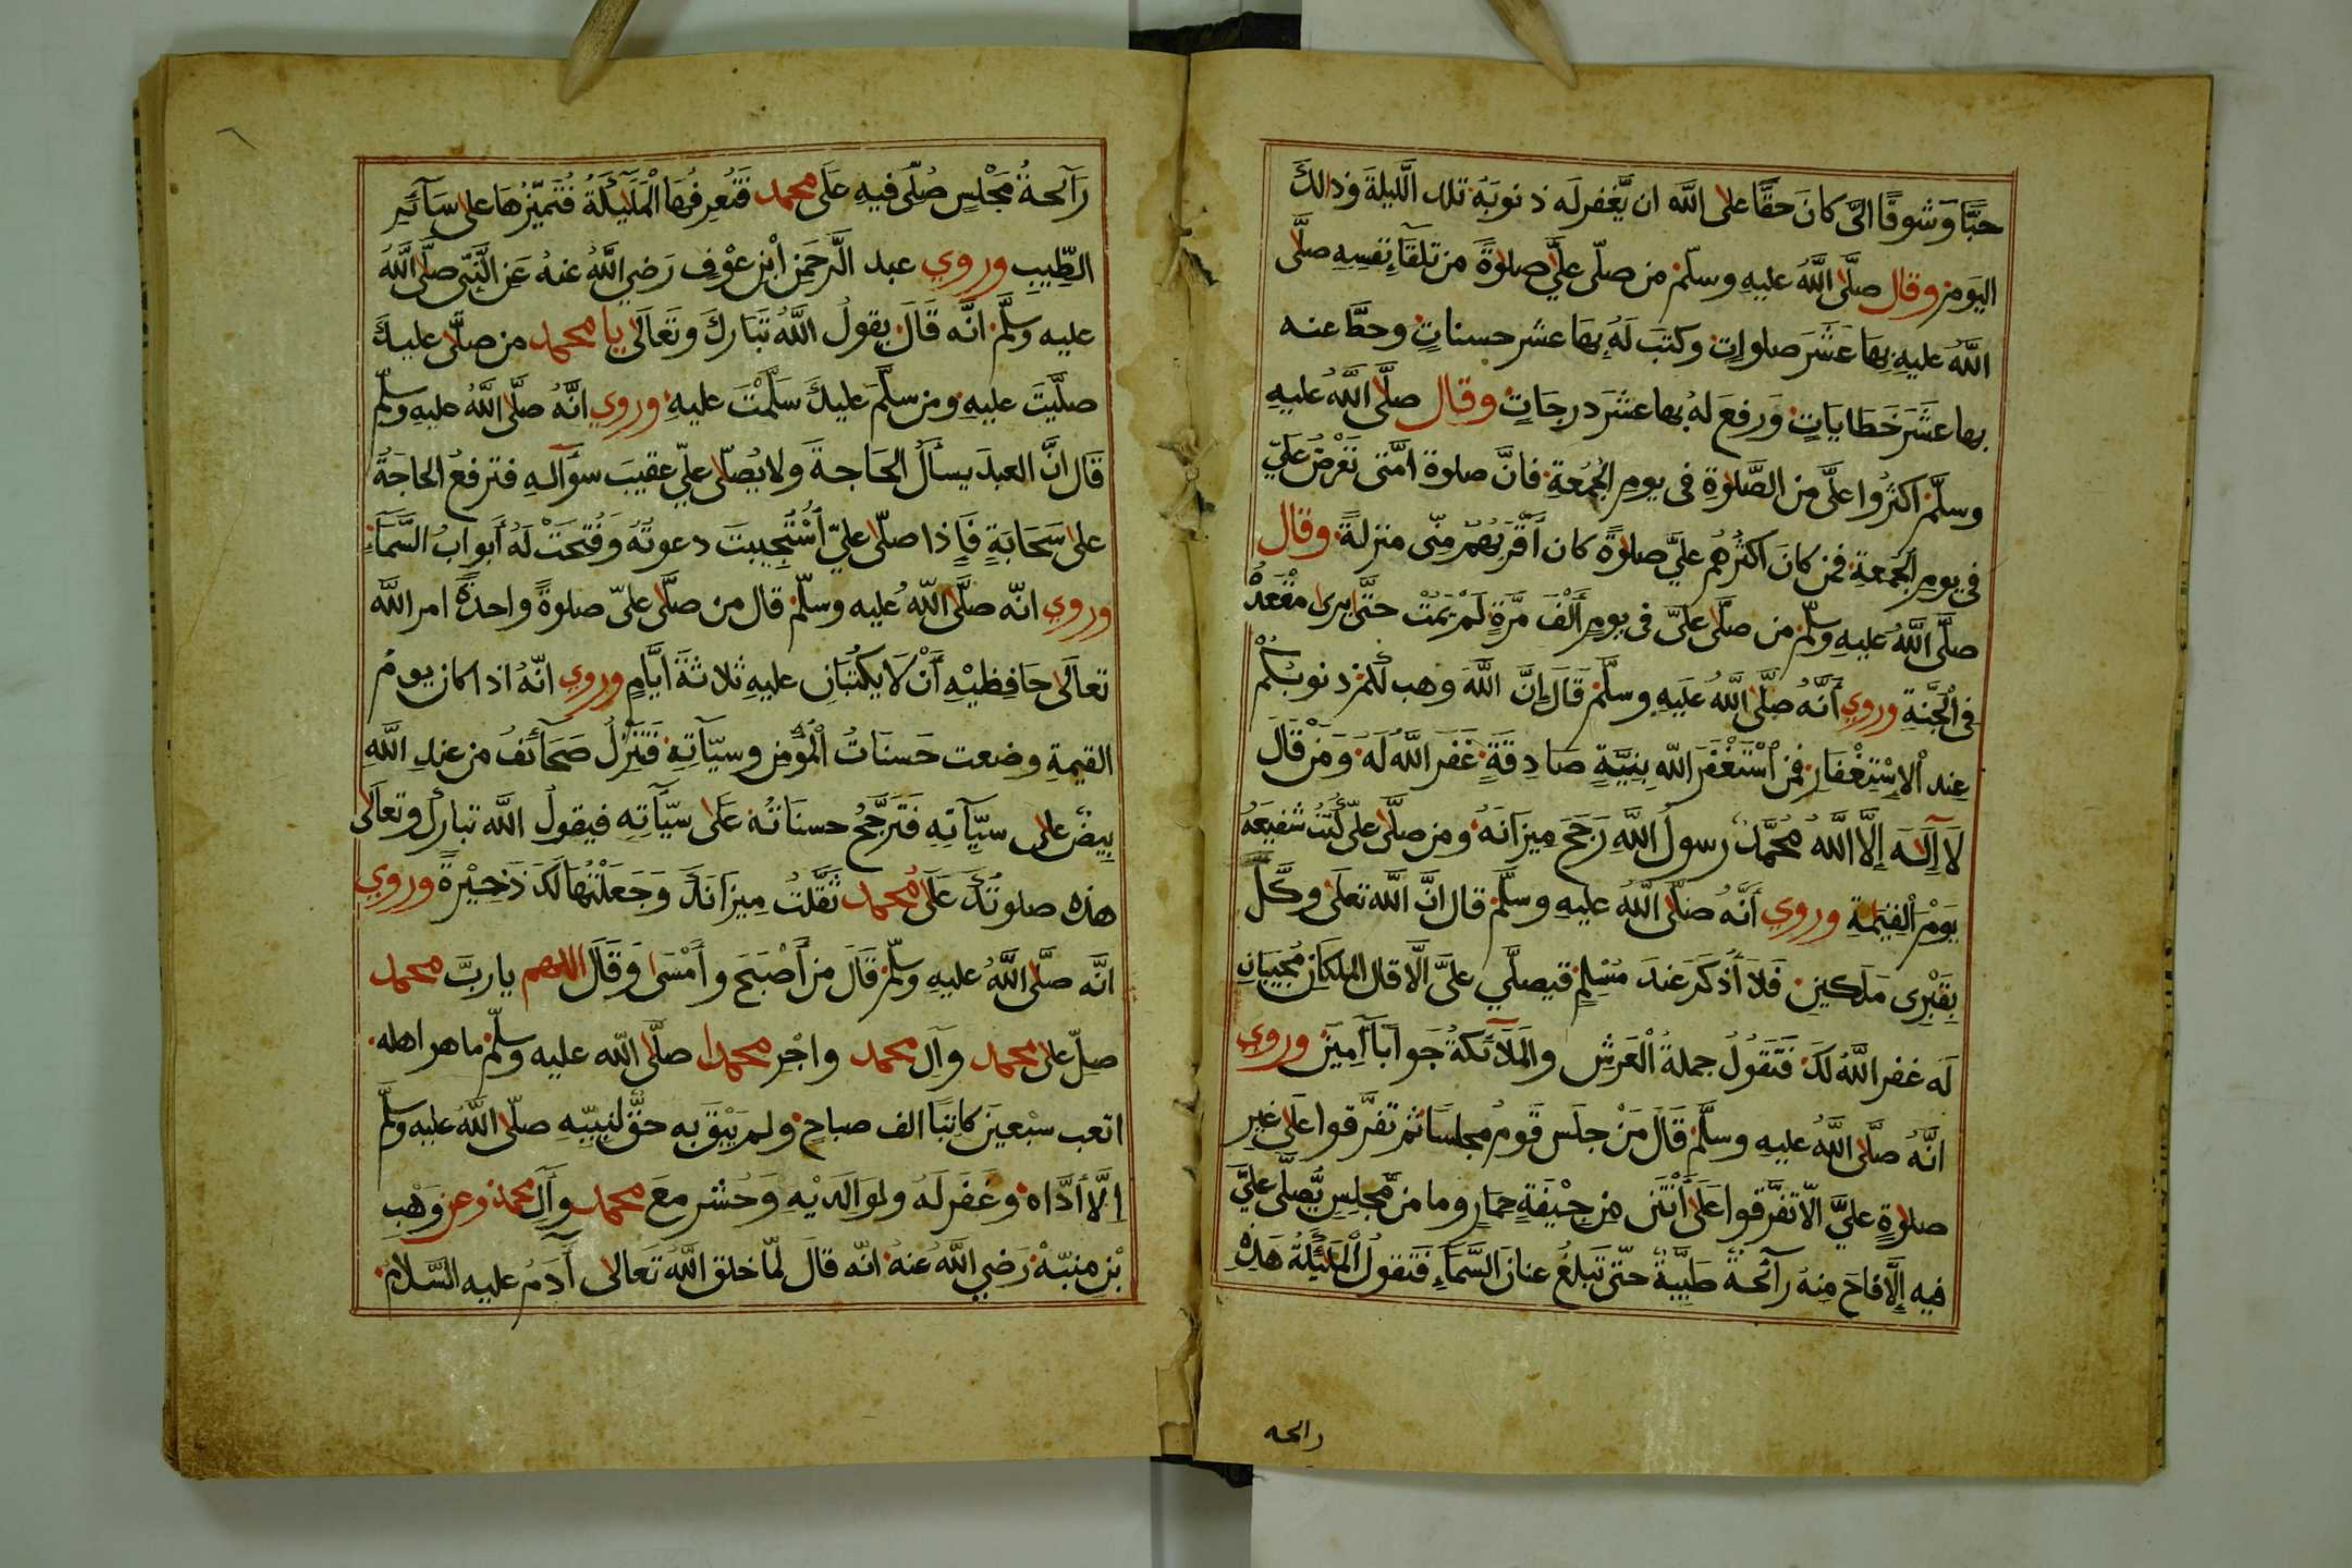 حبّا وَشوقًا الىّ كانَ حقّا على اللّه ان يَّغفر لَه ذنوبَهُ تلك الَّليلةَ وَذالكَ
اليَومَ وقال صلَّى اللَّهُ عليهِ وسلّمْ من صلّى علَيَّ صلوةً من تلقآءِ نفسِهِ صلَّى
اللهُ عليهِ بِهَا عَشَرَ صلواتٍ وكتبَ لَهُ بِهَا عشر حسناتٍ وحطَّ عنه
بها عشَرَ خَطَاياتٍ وَرفعَ لهُ بها عشَرَ درجَاتٍ وقال صلَّى اللَّهُ عليهِ
وسلّمْ اكثرُوا علَىَّ من الصَّلوةِ فى يومِ الجُمُعةِ فانَّ صلوة امّتى تعْرضُ علَيّ
فى يومِ الجمعةِ فمن كانَ اكثَرُهُم علَيَّ صلوةً كان أقْرَبُهُمْ مِنّى منزلةً وقال
صلَّى اللَّهُ عليهِ وسلّمْ من صلَّى علَىَّ فى يومٍ ألْفَ مَرَّةٍ لَمْ يَمُتْ حتَّى يرى مقْعَدَهُ
فى الْجَنَّةِ وروي أنَّهُ صلَّى اللَّهُ عَلَيهِ وسلَّمْ قَالَ إنَّ اللَّهَ وهب لكُمْ ذنوبكُمْ
عِند الْإسْتِغْفَارِ فمن اسْتَغْفَرَ اللّهَ بِنِيَّةٍ صَادِقَةٍ غَفَرَ اللَّهُ لَهُ وَمَنْ قَالَ
لَا إِلَهَ إلَّا اللَّهُ مُحَمَّدٌ رسولُ اللَّهِ رَجَحَ مِيزَانَهُ ومن صلَّى علىّ كُنْتُ شَفِيعَهُ
يَوْمَ القِيَمَةِ وروي أنَّهُ صَلَّى اللَّهُ عليهِ وسلَّمْ قال انَّ اللَّه تعَلَى وكَّلَ
بِقَبْرِى مَلَكينِ فَلَا أُذكَرَ عندَ مُسْلِمٍ فيصلّي علىَّ الَّا قال الملكانِ مُجِيبَانِ
لَه غفر اللَّهُ لَكَ فَتَقُولُ حملةُ الْعَرشِ والمَلَآئكةُ جَوَابًا آمِينَ وروي
انَّهُ صَلَّى اللَّهُ عليهِ وسلَّمْ قَالَ مَنْ جلَس قَومٌ مجلسًا ثم تفَرَّقوا عَلَى غيرِ
صلوةٍ علَيَّ الّا تفَرَّقوا عَلَى أَنْتَنِ مِن جِيْفَةِ حمَارٍ وما من مَّجلِسٍ يُّصلَّى علَيَّ
فيهِ إلَّا فاحَ مِنهُ رآئحةٌ طَيِّبةٌ حتّى تَبلغُ عنانَ السَّمَآءِ فَتقولُ الْمَلَئِكَةُ هَذِهِ
رائحه
رَآئحةُ مَجْلِسٍ صُلِّىَ فيهِ عَلَى محمد فَتَعرفُهَا الْمَلَئِكَةُ فَتُمَيِّزُهَا على سَآئِرِ
الطِّيبِ وروي عبد الرَّحمَنِ أبْنِ عوْفٍ رَضِي اللَّهُ عنهُ عَنِ النَّبِّى صلَّى اللَّهُ
عليه وسَلَّم انَّه قَالَ يقولُ اللَّهُ تَبَارك وتَعَالَى يا محمد من صلَّى عليكَ
صلَّيتُ عليهِ ومن سلَّمَ عليكَ سَلَّمْتُ عليهِ وروي انَّهُ صلَّى اللَّهُ عليهِ وسلّم
قَال انَّ العبدَ يسألُ الحَاجةَ ولا يُصلّى علىّ عقيبَ سوَآلهِ فترفعُ الحاجَةُ
على سَحَابَةٍ فَإذا صلّى علىّ اسْتُجِيبت دعوتُهُ وَفُتِحَتْ لَهُ أبوابُ السَّمَآءِ
وروي انّه صلَّى اللَّهُ عليه وسلّم قال من صلَّى علىّ صلوةً واحدةً امر اللَّه
تعالَى حَافِظَيْهِ أَنْ لَا يكتُبَانِ عليهِ ثلاثةَ ايَّامٍ وروي انّهُ اذا كان يومُ
القيمةِ وضعت حَسنَاتُ الْمُؤمِنِ وسيّآتِهِ فَتَنْزِلُ صَحَآئفُ من عندِ اللَّهِ
بِيضٌ على سيّآتِهِ فَتَرَجَّحُ حسنَاتُهُ عَلَى سيّآتِهِ فيقولُ اللَّه تبارك وتعالَى
هذه صلوتُكَ عَلَى محمد ثَقَّلتُ مِيزَانَكَ وَجَعَلْتُهَا لَكَ ذَخِيْرةً وروي
انَّه صلَّى اللَّهُ عليهِ وسلّمْ قَالَ من أَصْبَحَ وأَمْسَى وَقَالَ اللهم يا ربَّ محمد
صلِّ على محمد وآلِ محمد واجْرِ محمدا صلَّى اللَّه عليه وسلّم ما هو اهله
اتعب سبْعِينَ كاتِبًا الف صباحٍ ولم يَبْقَ به حقٌّ لنبيّهِ صلّى اللَّهُ عليه وسلّم
إلَّا أدَّاهُ وغَفَر لَهُ ولوالدَيْهِ وَحُشر معَ محمد وآلِ محمد وعن وَهْبِ
بْنِ منبّهْ رَضِي اللَّهُ عنهُ انّه قالَ لمّا خلق اللَّهُ تعالى آدَمُ عليه السَّلامُ